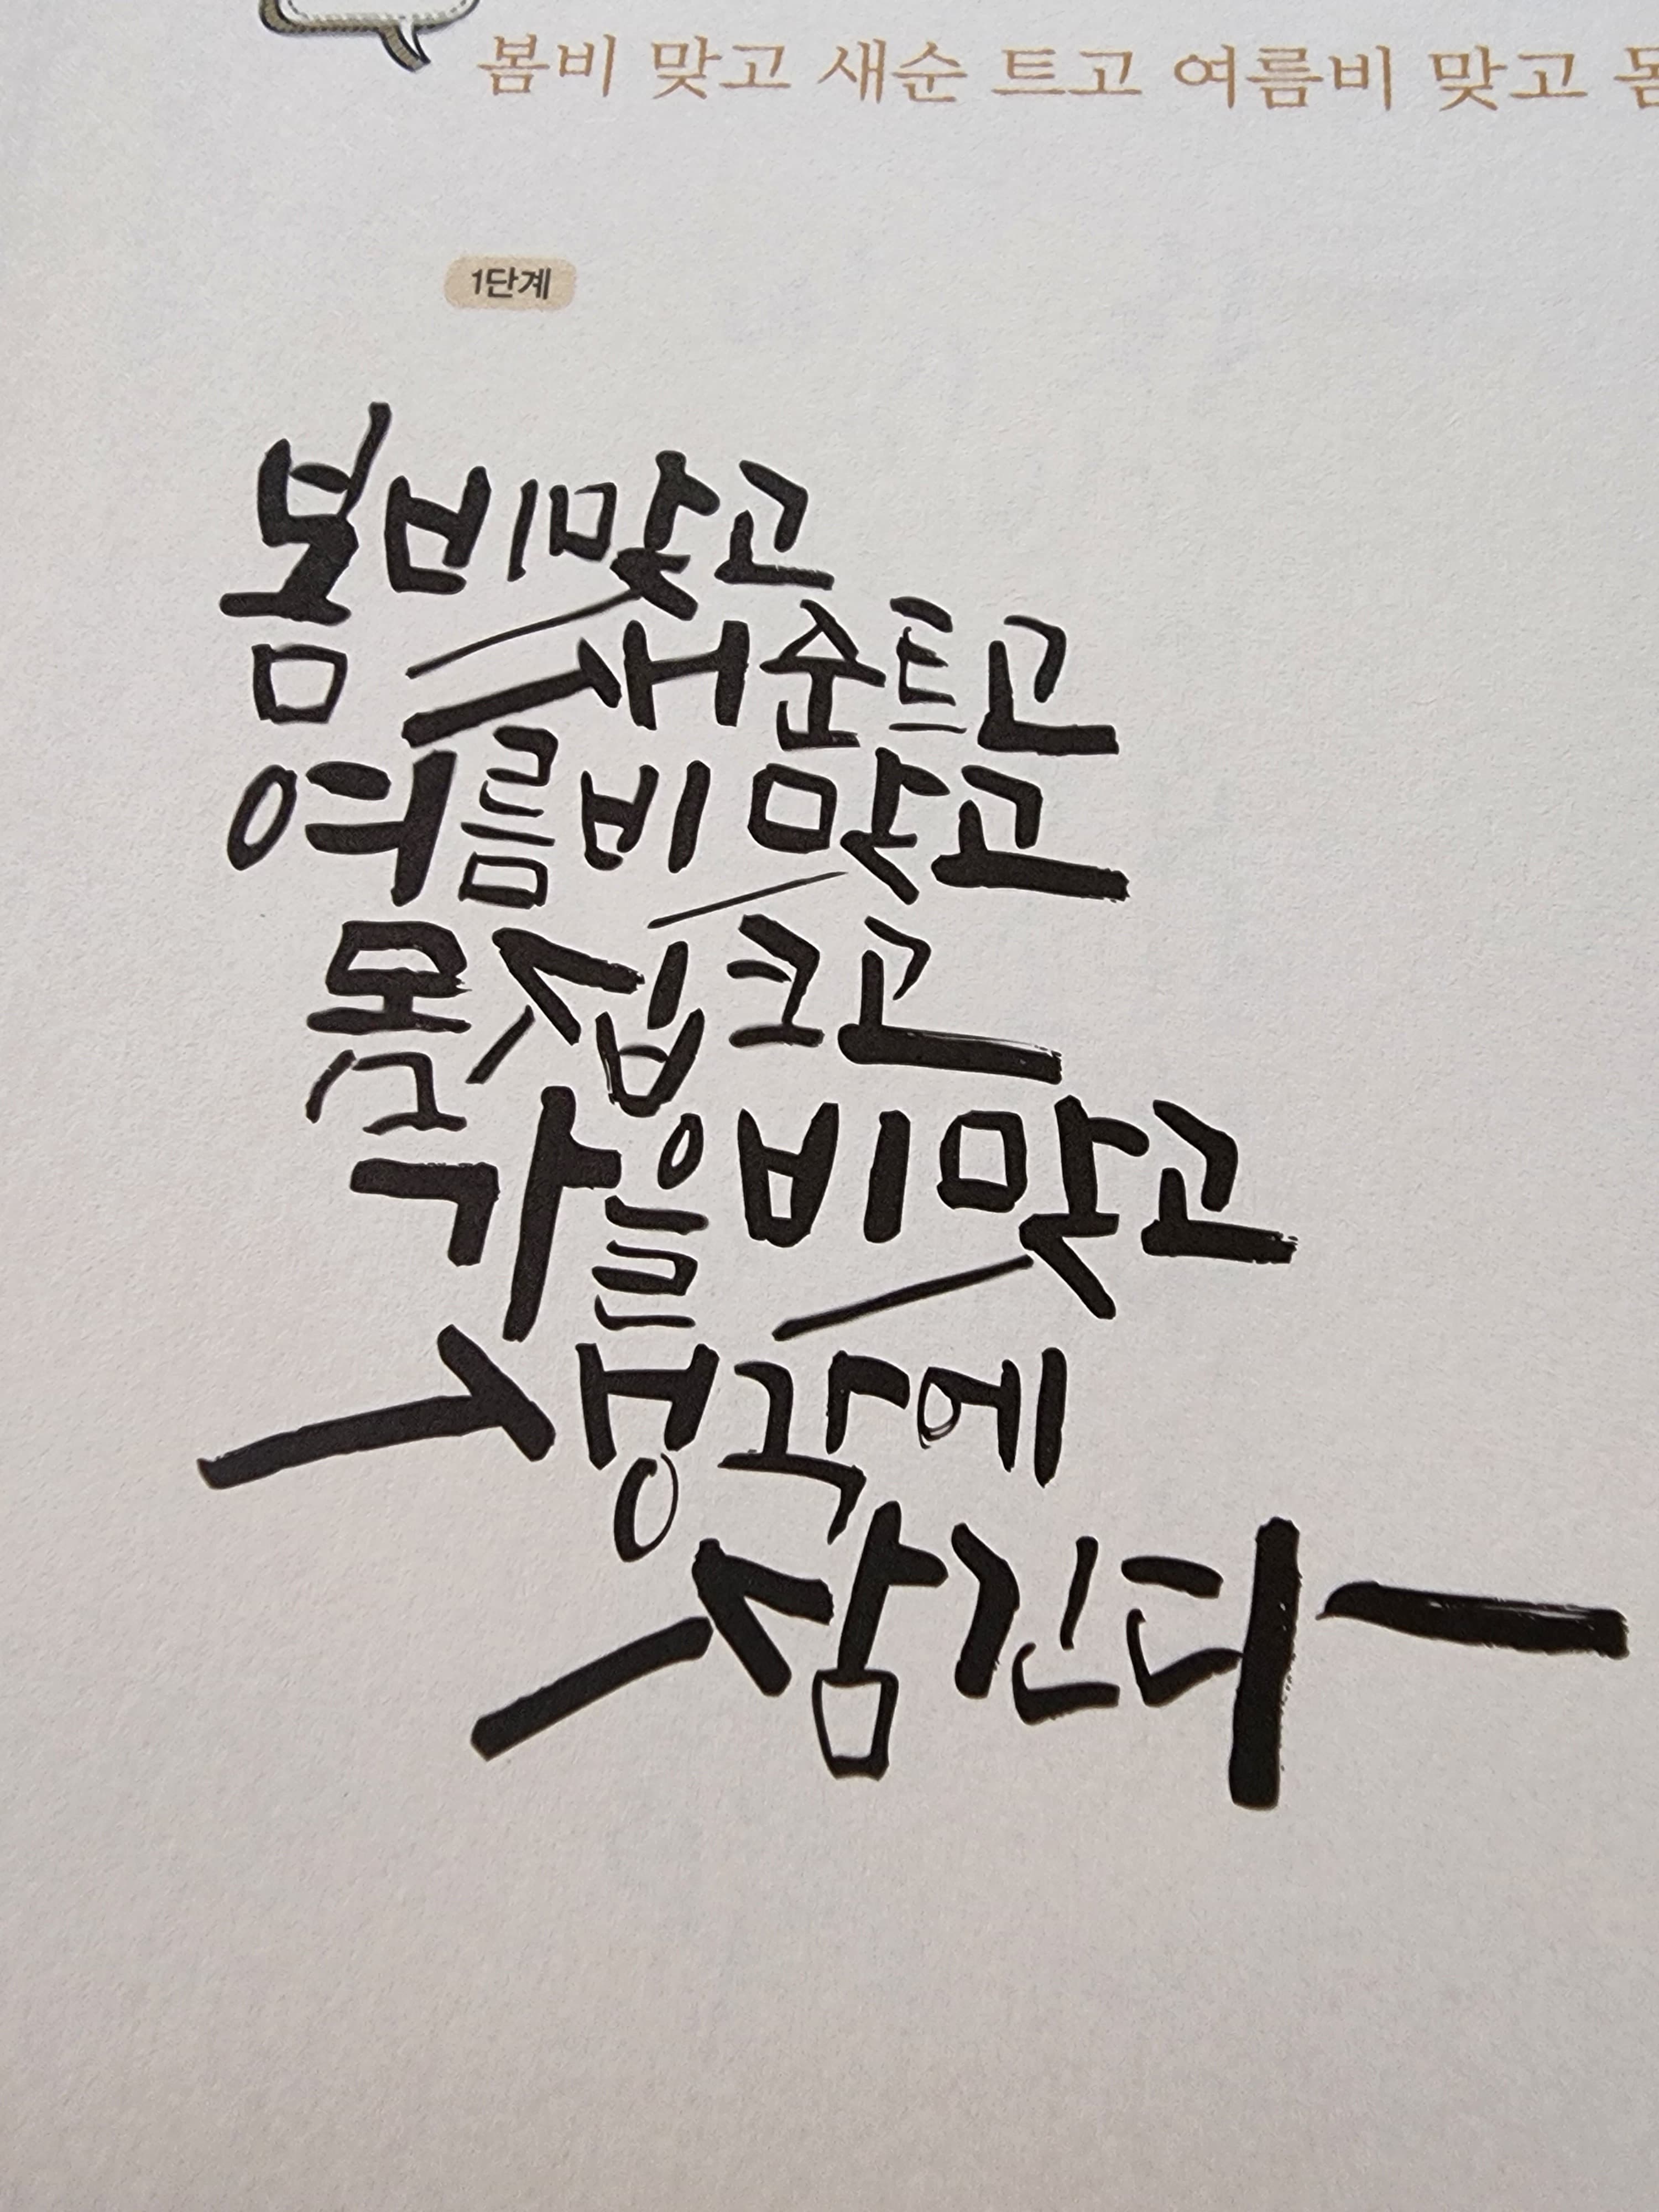 봄비 맞고 새순 트고 여름비 맞고 몸
1단계
봄비맞고
새순트고
여름비맞고
몸집크고
가을비맞고
생각에
잠긴다